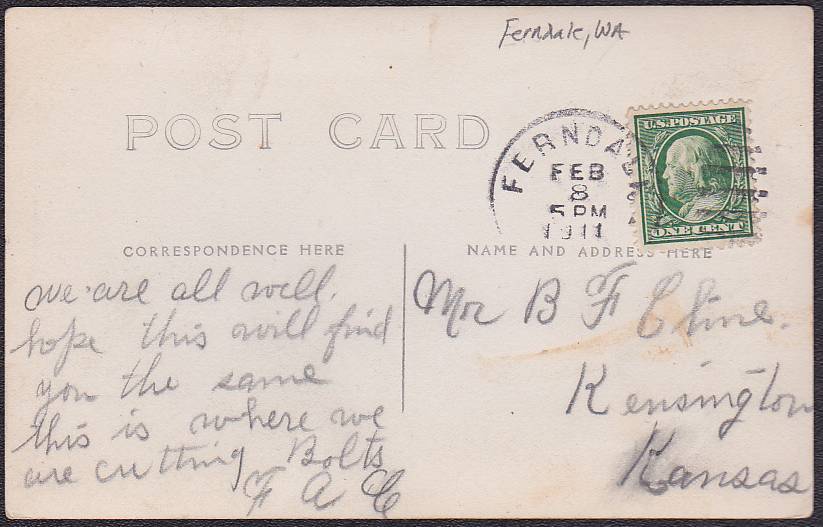 Ferndale, WA
POST CARD
FERNDALE
FEB
8
5 PM
1911
U.S. POSTAGE
ONE CENT
CORRESPONDENCE HERE
NAME AND ADDRESS HERE
we are all well.
hope this will find
you the same
this is where we
are cutting Bolts
F A C
Mr B F Cline.
Kensington
Kansas